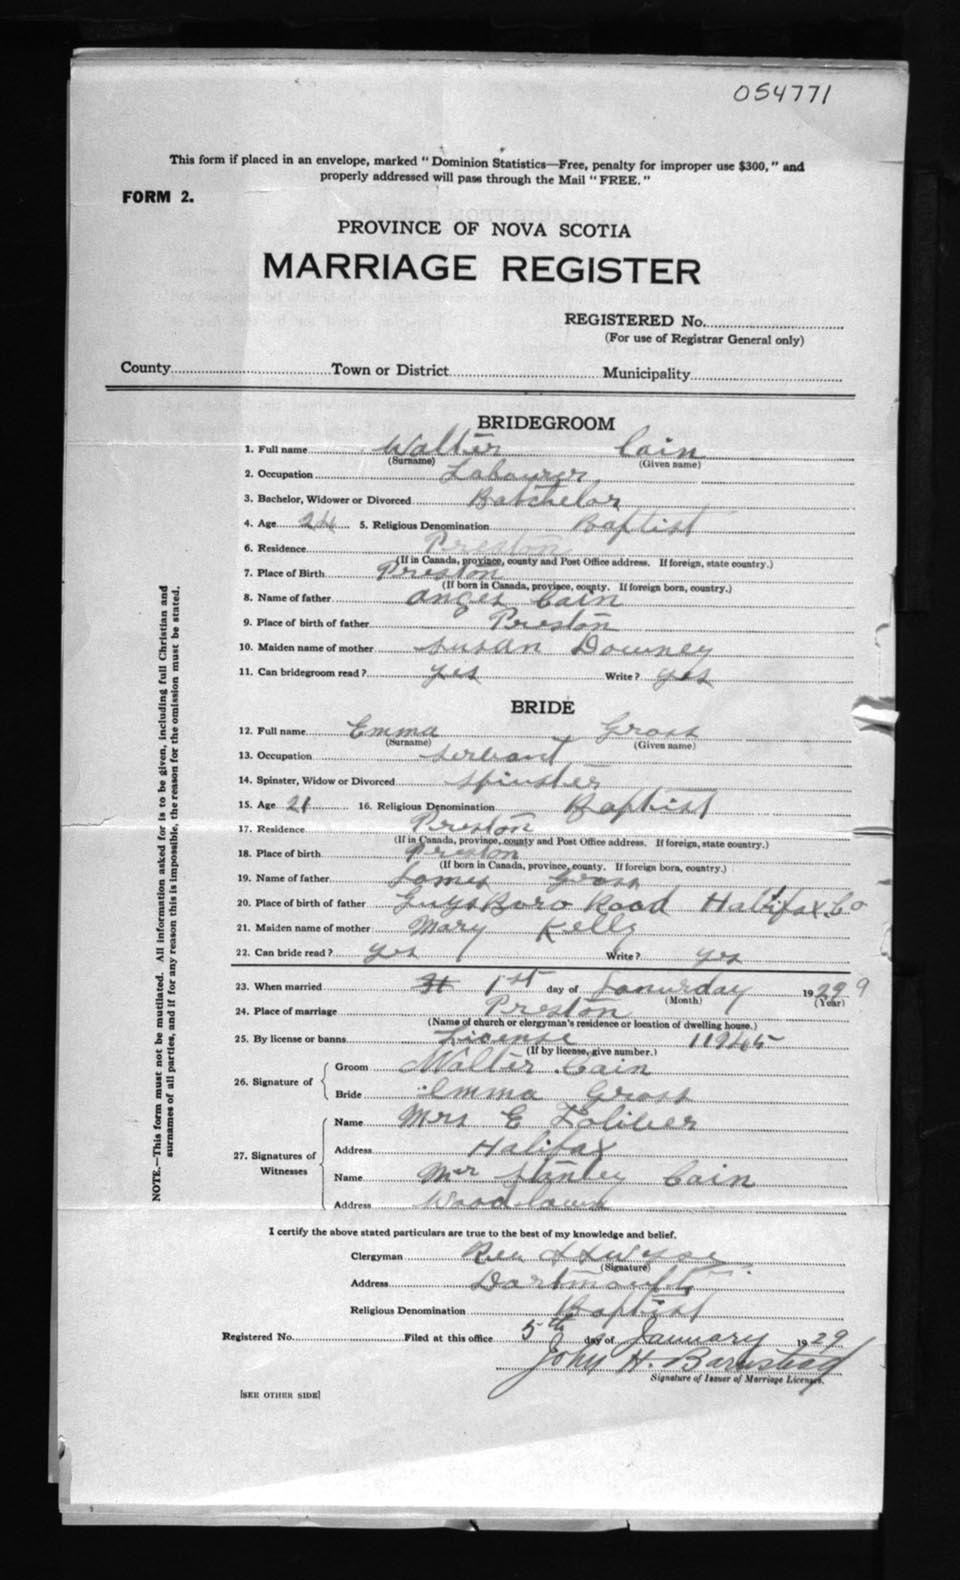 054771
This form if placed in an envelope, marked "Dominion Statistics—Free, penalty for improper use $300," and
properly addressed will pass through the Mail "FREE."
FORM 2.
PROVINCE OF NOVA SCOTIA
MARRIAGE REGISTER
REGISTERED No.
(For use of Registrar General only)
County Town or District Municipality
BRIDEGROOM
1. Full name Walter Cain
(Surname) (Given name)
2. Occupation Labourer
3. Bachelor, Widower or Divorced Batchelor
4. Age 24 5. Religious Denomination Baptist
6. Residence Preston
(If in Canada, province, county and Post Office address. If foreign, state country.)
7. Place of Birth Preston
(If born in Canada, province, county. If foreign born, country.)
8. Name of father Anges Cain
9. Place of birth of father Preston
10. Maiden name of mother Susan Downey
11. Can bridegroom read? yes Write? yes
BRIDE
12. Full name Emma Gross
(Surname) (Given name)
13. Occupation Servant
14. Spinster, Widow or Divorced Spinster
15. Age 21 16. Religious Denomination Baptist
17. Residence Preston
(If in Canada, province, county and Post Office address. If foreign, state country.)
18. Place of birth Preston
(If born in Canada, province, county. If foreign born, country.)
19. Name of father James Gross
20. Place of birth of father Guysboro Road Halifax Co
21. Maiden name of mother Mary Kelly
22. Can bride read? yes Write? yes
23. When married 1st day of Janurday 1929 9
(Month) (Year)
24. Place of marriage Preston
(Name of church or clergyman's residence or location of dwelling house.)
25. By license or banns License 11945
(If by license, give number.)
26. Signature of Groom Walter Cain
Bride Emma Gross
27. Signatures of Witnesses Name Mrs E Toliver
Address Halifax
Name Mr Stanley Cain
Address Woodlawn
I certify the above stated particulars are true to the best of my knowledge and belief.
Clergyman Rev
(Signature)
Address Dartmouth
Religious Denomination Baptist
Registered No. Filed at this office 5th day of January 1929
John H. Barnstead
Signature of Issuer of Marriage Licenses.
[SEE OTHER SIDE]
NOTE.—This form must not be mutilated. All information asked for is to be given, including full Christian and
surnames of all parties, and if for any reason this is impossible, the reason for the omission must be stated.